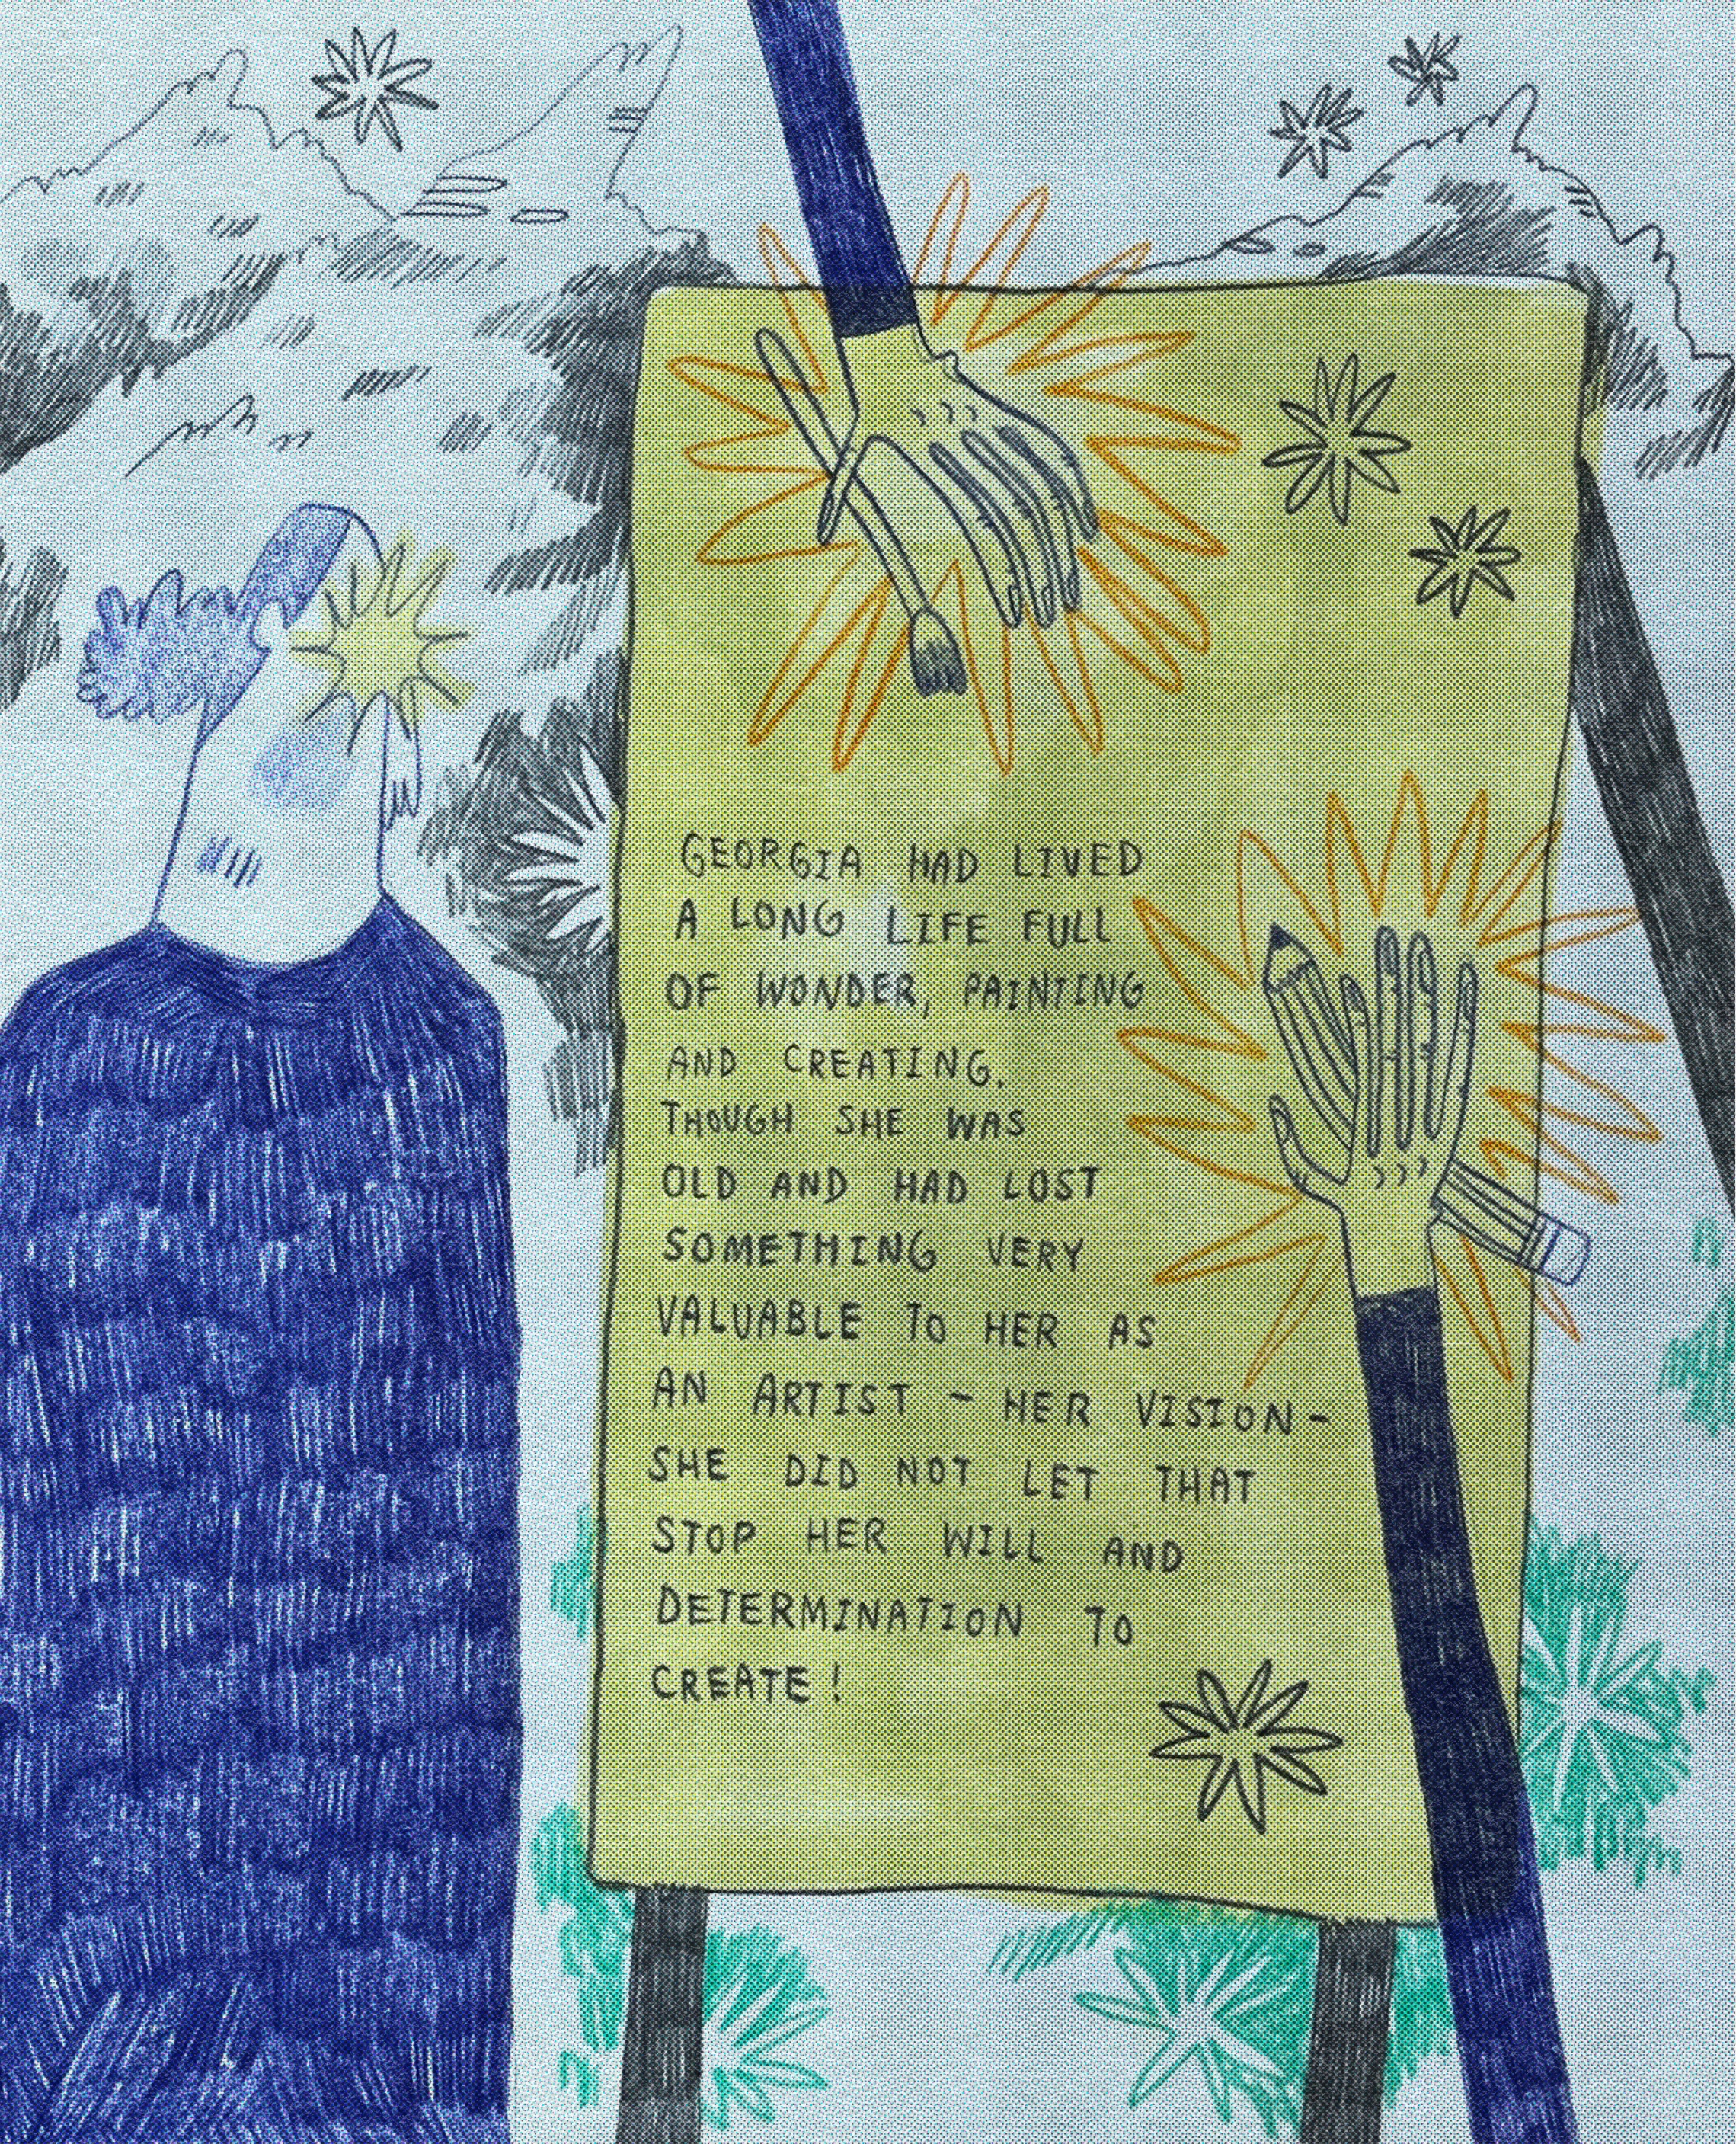 GEORGIA HAD LIVED
A LONG LIFE FULL
OF WONDER, PAINTING
AND CREATING.
THOUGH SHE WAS
OLD AND HAD LOST
SOMETHING VERY
VALUABLE TO HER AS
AN ARTIST - HER VISION-
SHE DID NOT LET THAT
STOP HER WILL AND
DETERMINATION TO
CREATE!